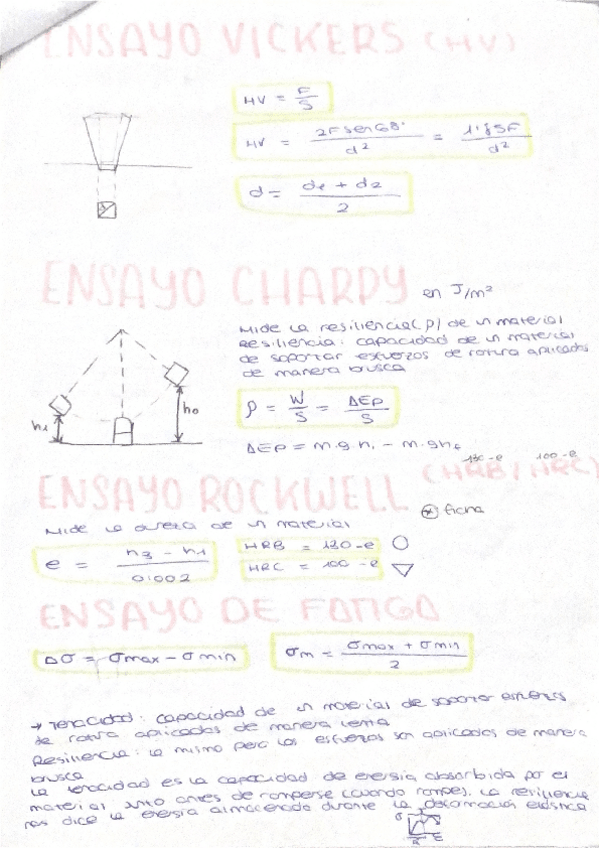 ENSAYO VICKERS (HV)
HV = F/S
HV = 2F sen68° / d² = 1'85F / d²
d = d1 + d2 / 2
ENSAYO CHARPY en J/m²
Mide la resiliencia (ρ) de un material
Resiliencia: capacidad de un material
de soportar esfuerzos de rotura aplicados
de manera brusca
ρ = W/S = ΔEp/S
h1
h0
ΔEp = m·g·hi - m·g·hf
130-e 100-e
ENSAYO ROCKWELL (HRB/HRC)
Mide la dureza de un material
ficha
e = h3 - h1 / 0'002
HRB = 130-e
HRC = 100-e
ENSAYO DE FATIGA
Δσ = σmax - σmin
σm = σmax + σmin / 2
→ Tenacidad: capacidad de un material de soportar esfuerzos
de rotura aplicados de manera lenta
Resiliencia: lo mismo pero los esfuerzos son aplicados de manera
brusca
La tenacidad es la capacidad de energía absorbida por el
material justo antes de romperse (cuando rompe). La resiliencia
nos dice la energía almacenada durante la deformación elástica